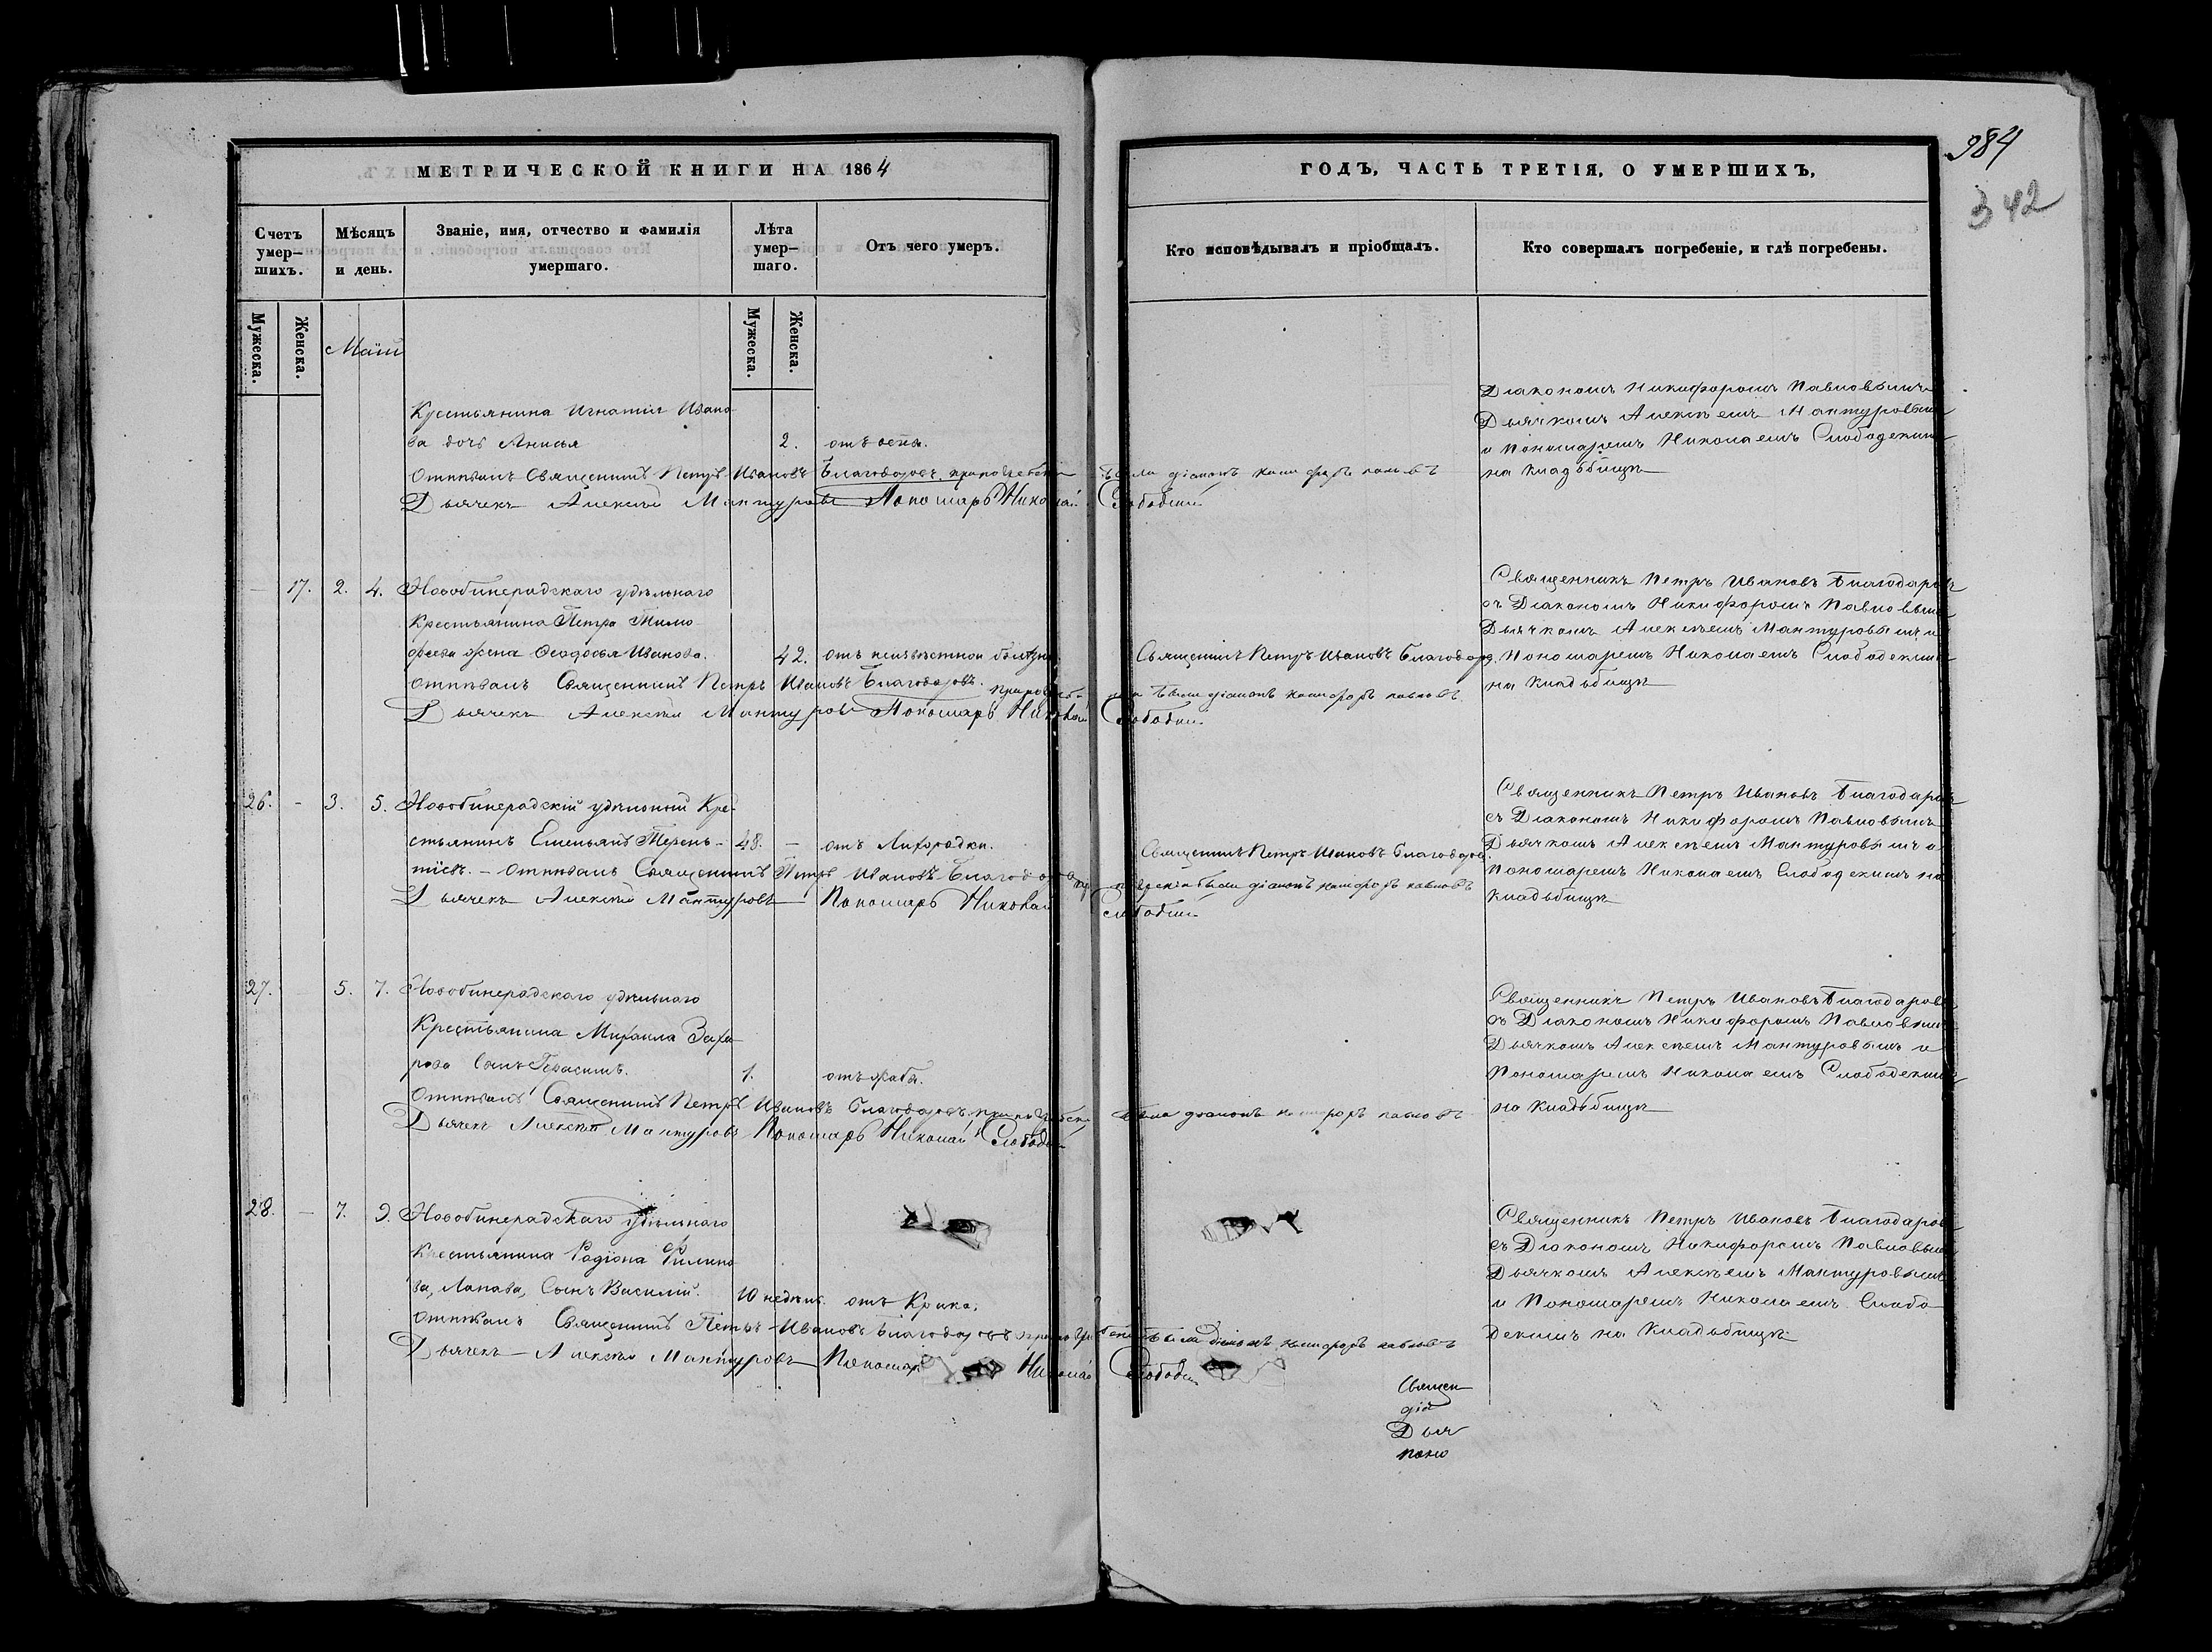 МЕТРИЧЕСКОЙ КНИГИ НА 1864
Счетъ умер-шихъ.
Мѣсяцъ и день.
Званіе, имя, отчество и фамилія умершаго.
Лѣта умер-шаго.
Отъ чего умеръ.
Мужеска.
Женска.
Маій
Мужеска.
Женска.
Крестьянина Игнатія Ивано-
ва дочь Анисья 2. отъ оспы.
Отпѣвалъ Священникъ Петръ Ивановъ Благодаровъ, при погребеніи
Дьячекъ Алексѣй Мантуровъ Пономарь Николай
17. 2. 4. Новобинерадскаго удѣльнаго
Крестьянина Петра Тимо-
феева жена Феодосья Иванова. 42. отъ неизвѣстной болѣзни.
отпѣвалъ Священникъ Петръ Ивановъ Благодаровъ. при погребе-
Дьячекъ Алексѣй Мантуровъ Пономарь Николай
26. - 3. 5. Новобинерадскій удѣльный Кре-
стьянинъ Емельянъ Терень- 48. - отъ Лихорадки.
тіевъ. - Отпѣвалъ Священникъ Петръ Ивановъ Благодаровъ
Дьячекъ Алексѣй Мантуровъ Пономарь Николай
27. 5. 7. Новобинерадскаго удѣльнаго
Крестьянина Михаила Заха-
рова Сынъ Герасимъ. 1. отъ жабы.
Отпѣвалъ Священникъ Петръ Ивановъ Благодаровъ, при погребеніи
Дьячекъ Алексѣй Мантуровъ Пономарь Николай Слободкинъ
28. - 7. 9. Новобинерадскаго удѣльнаго
Крестьянина Родіона Филипо-
ва, Лапава, Сынъ Василій. 10 недѣль. отъ Крика.
Отпѣвалъ Священникъ Петръ Ивановъ Благодаровъ при погре
Дьячекъ - Алексѣй Мантуровъ Пономарь Николай
384
342
ГОДЪ, ЧАСТЬ ТРЕТІЯ, О УМЕРШИХЪ,
Кто исповѣдывалъ и пріобщалъ.
Кто совершалъ погребеніе, и гдѣ погребены.
Діакономъ Никифоромъ Павловымъ
Дьячкомъ Алексѣемъ Мантуровымъ
и Пономаремъ Николаемъ Слободскимъ
на Кладьбищѣ
были діаконъ Никифоръ Павловъ
Слободкинъ
Священникъ Петръ Ивановъ Благодаровъ
съ Діакономъ Никифоромъ Павловымъ
Дьячкомъ Алексѣемъ Мантуровымъ и
Пономаремъ Николаемъ Слободскимъ
на Кладьбищѣ
Священникъ Петръ Ивановъ Благодаровъ.
ніи были діаконъ Никифоръ Павловъ
Слободкинъ
Священникъ Петръ Ивановъ Благодаровъ
съ Діакономъ Никифоромъ Павловымъ
Дьячкомъ Алексѣемъ Мантуровымъ и
Пономаремъ Николаемъ Слободскимъ на
Кладьбищѣ
Священникъ Петръ Ивановъ Благодаровъ.
были діаконъ Никифоръ Павловъ
Слободкинъ
Священникъ Петръ Ивановъ Благодаровъ
съ Діакономъ Никифоромъ Павловымъ
Дьячкомъ Алексѣемъ Мантуровымъ и
Пономаремъ Николаемъ Слободскимъ
на Кладьбищѣ
были діаконъ Никифоръ Павловъ
Священникъ Петръ Ивановъ Благодаровъ
съ Діакономъ Никифоромъ Павловымъ
Дьячкомъ Алексѣемъ Мантуровымъ
и Пономаремъ Николаемъ Слобо-
дскимъ на Кладьбищѣ
беніи были діаконъ Никифоръ Павловъ
Слободкинъ
Священ
діа
Дьяч
поно